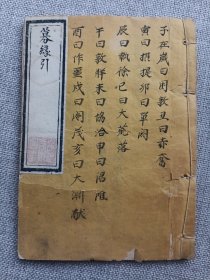 子在歲曰困敦丑曰赤奮
寅曰攝提卯曰單閼
辰曰執徐巳曰大荒落
午曰敦牂未曰協洽申曰涒灘
酉曰作噩戌曰閹茂亥曰大淵獻
募緣引